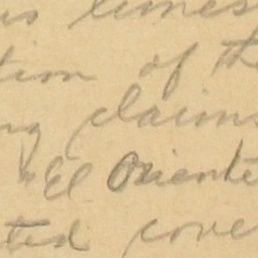 is times
tion of th
ng claims
"El Oriente
ted cove